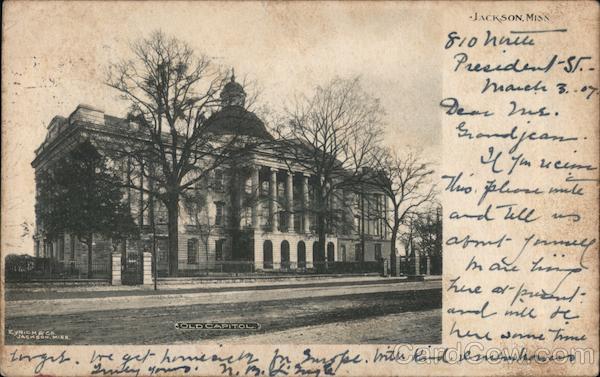 JACKSON, MISS
810 North
President St.
March 3. 07.
Dear Mr.
Grandjean.
If you receive
this, please write
and tell us
about yourself
We are living
here at present
and will be
here some time
OLD CAPITOL.
EYRICH & CO.
JACKSON, MISS.
to get. We get homesick for Europe. With kind
Truly yours.
CardCow.com